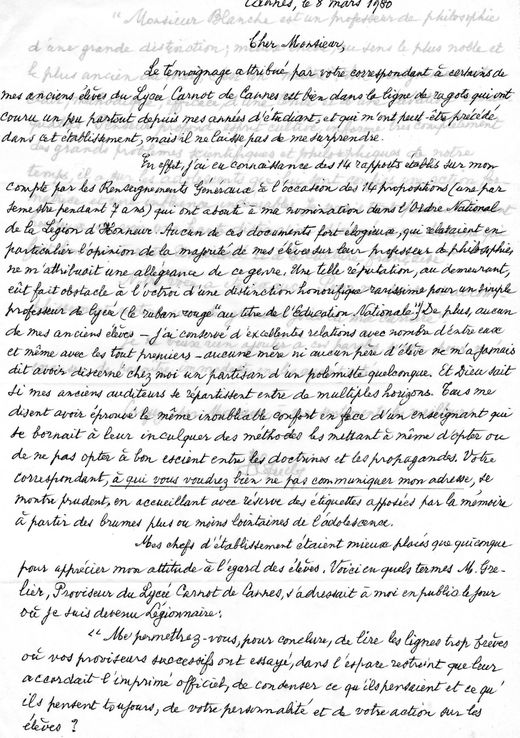 Cannes, le 8 mars 1980
"Monsieur Blanche est un professeur de philosophie
d'une grande distinction;
Cher Monsieur,
Le témoignage attribué par votre correspondant à certains de
mes anciens élèves du Lycée Carnot de Cannes est bien dans la ligne de ragots qui ont
couru un peu partout depuis mes années d'étudiant, et qui m'ont peut-être précédé
dans cet établissement, mais il ne laisse pas de me surprendre.
En effet, j'ai eu connaissance des 14 rapports établis sur mon
compte par les Renseignements Généraux à l'occasion des 14 propositions (une par
semestre pendant 7 ans) qui ont abouti à ma nomination dans l'Ordre National
de la Légion d'Honneur. Aucun de ces documents fort élogieux, qui relataient en
particulier l'opinion de la majorité de mes élèves sur leur professeur de philosophie,
ne m'attribuait une allégeance de ce genre. Une telle réputation, au demeurant,
eût fait obstacle à l'octroi d'une distinction honorifique rarissime pour un simple
professeur de lycée (le ruban rouge "au titre de l'Education Nationale"). De plus, aucun
de mes anciens élèves – j'ai conservé d'excellentes relations avec nombre d'entre eux
et même avec les tout premiers – aucune mère ni aucun père d'élève ne m'a jamais
dit avoir discerné chez moi un partisan d'un polémiste quelconque. Et Dieu sait
si mes anciens auditeurs se répartissent entre de multiples horizons. Tous me
disent avoir éprouvé le même inoubliable confort en face d'un enseignant qui
se bornait à leur inculquer des méthodes les mettant à même d'opter ou
de ne pas opter à bon escient entre les doctrines et les propagandes. Votre
correspondant, à qui vous voudrez bien ne pas communiquer mon adresse, se
montre prudent, en accueillant avec réserve des étiquettes apposées par la mémoire
à partir des brumes plus ou moins lointaines de l'adolescence.
Mes chefs d'établissement étaient mieux placés que quiconque
pour apprécier mon attitude à l'égard des élèves. Voici en quels termes M. Gre-
lier, Proviseur du Lycée Carnot de Cannes, s'adressait à moi en public le jour
où je suis devenu Légionnaire:
"Me permettrez-vous, pour conclure, de lire les lignes trop brèves
où vos proviseurs successifs ont essayé, dans l'espace restreint que leur
accordait l'imprimé officiel, de condenser ce qu'ils pensaient et ce qu'
ils pensent toujours, de votre personnalité et de votre action sur les
élèves ?